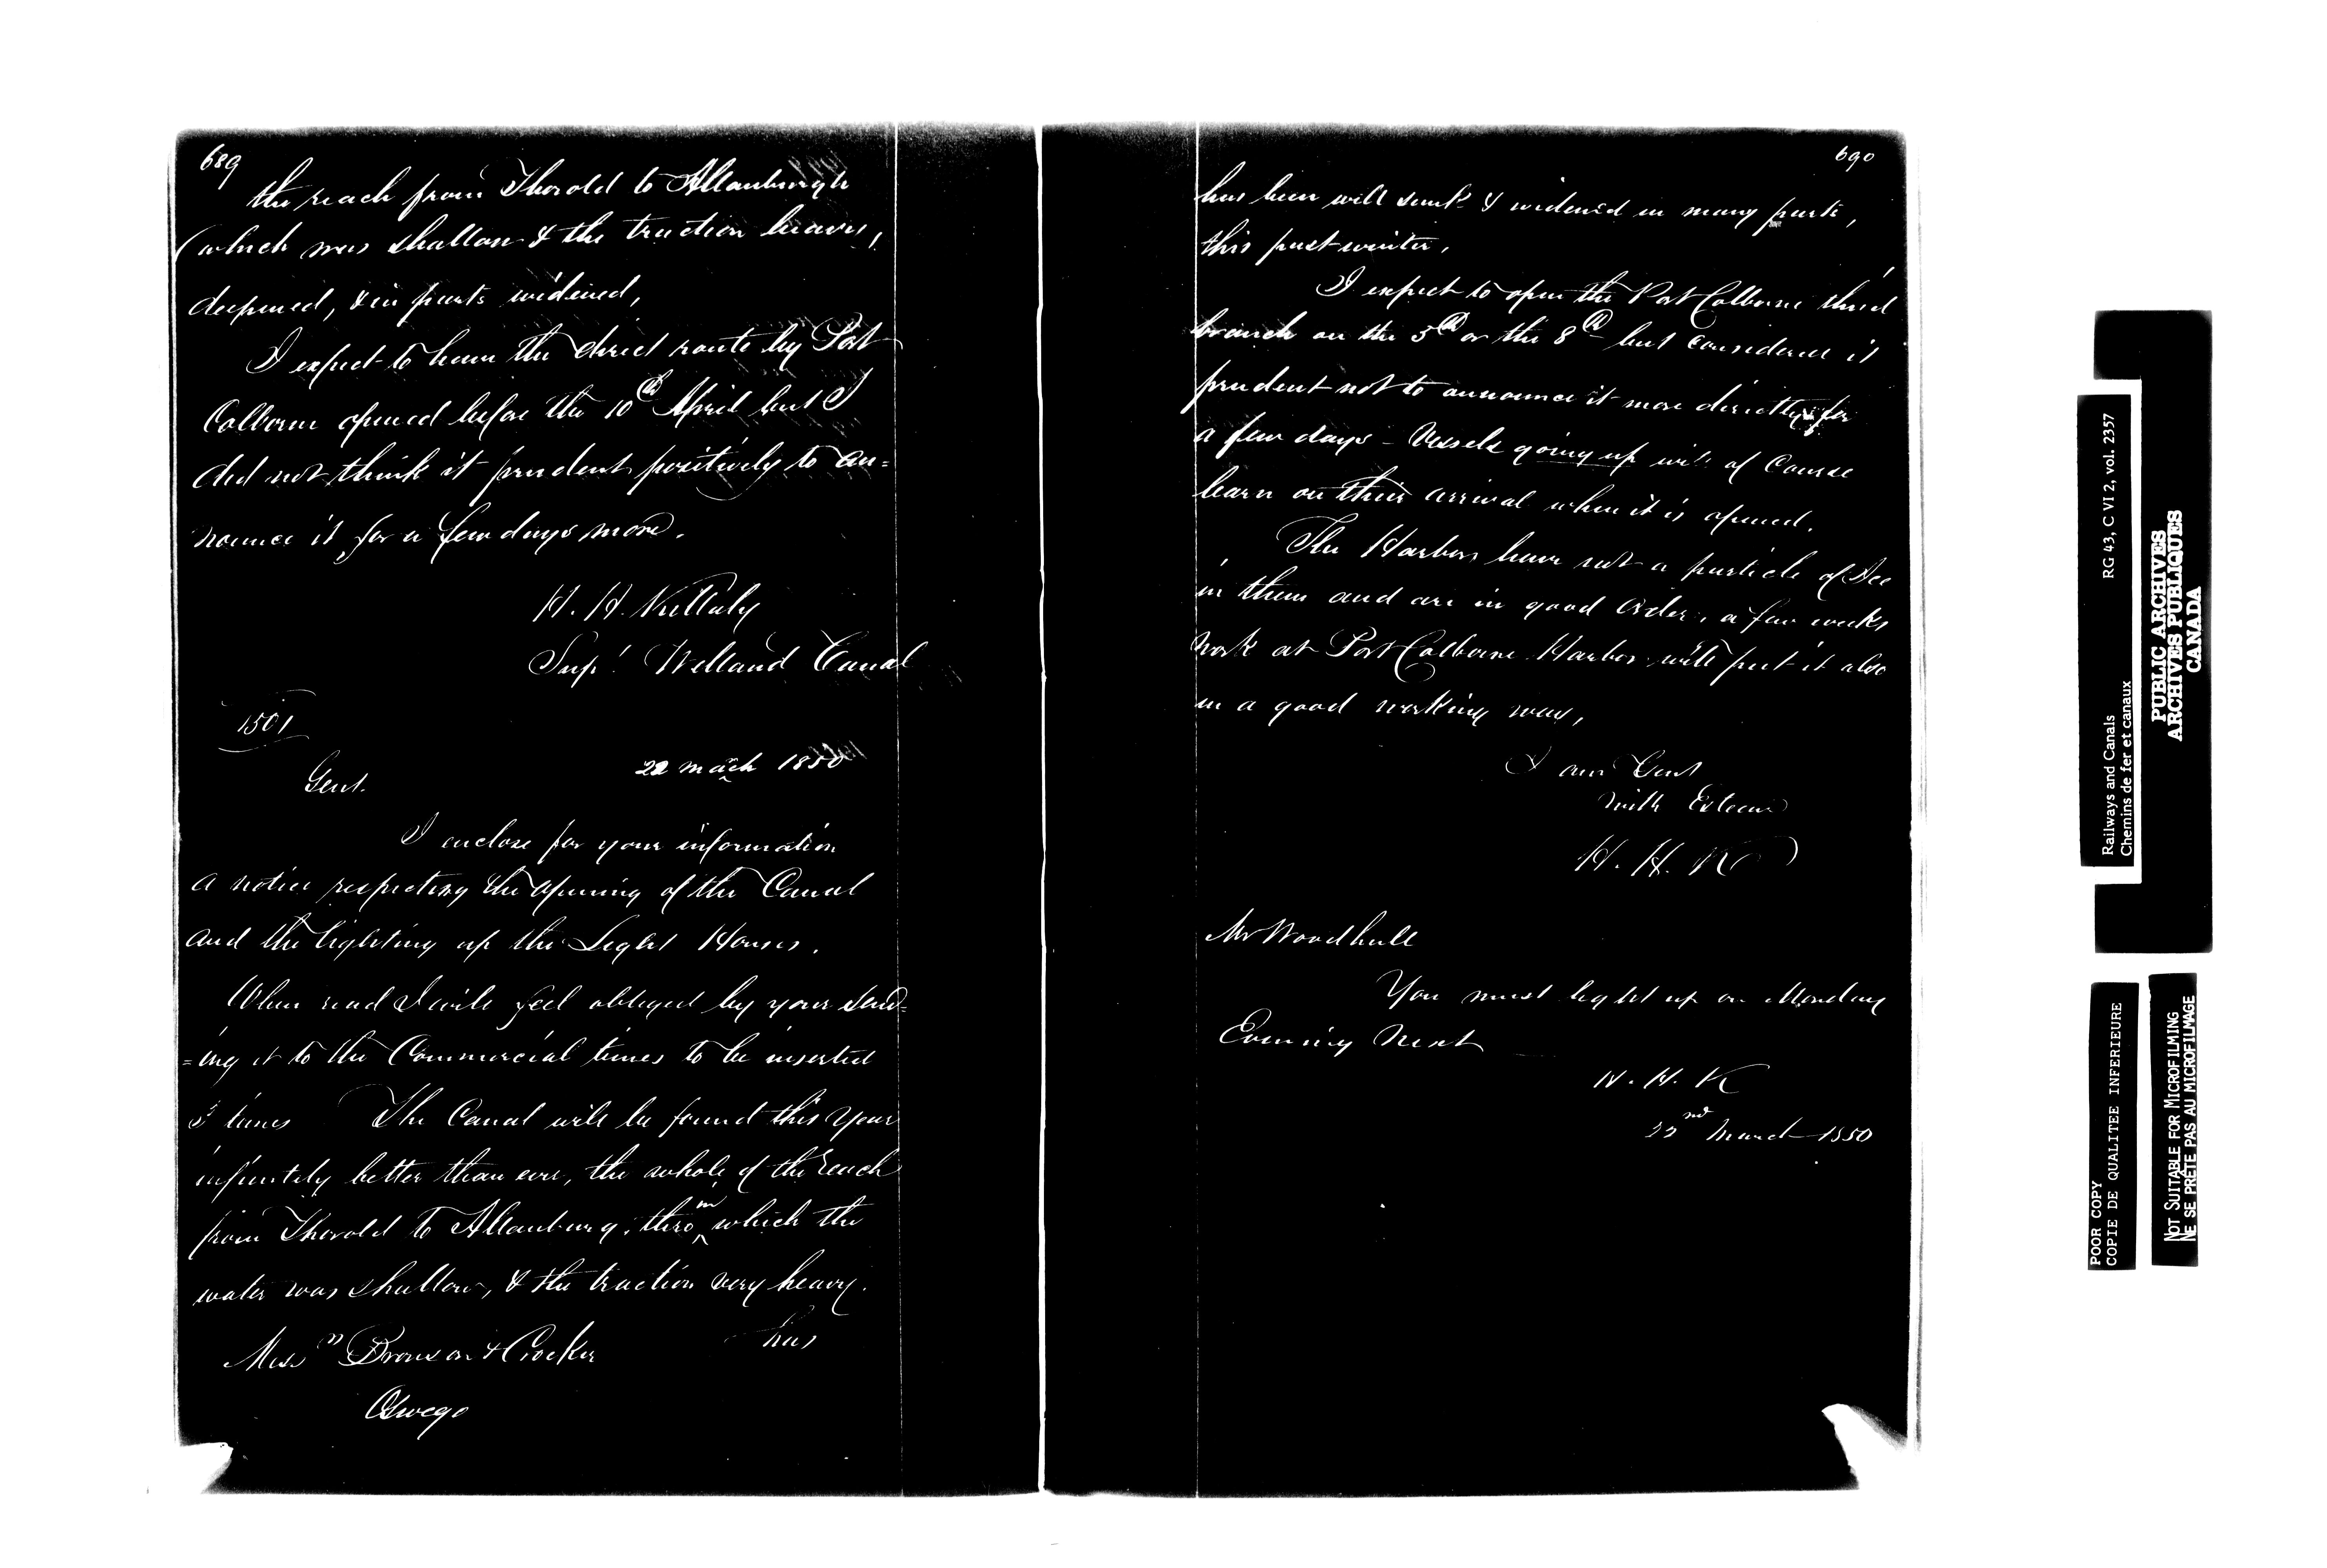 689
the reach from Thorold to Allanburgh
(which was shallow & the traction heavy,
deepened, & in parts widened,
I expect to have the direct route by Port
Colborne opened before the 10th April but I
did not think it prudent positively to an=
nounce it for a few days more.
H. H. Killaly
Supt. Welland Canal
1501
22 march 1850
Gent.
I enclose for your information
a notice respecting the opening of the Canal
and the lighting up the Light Houses.
When read I will feel obliged by your send=
=ing it to the Commercial times to be inserted
3 times The Canal will be found this year
infinitely better than ever, the whole of the reach
from Thorold to Allanburg, thro in which the
water was shallow, & the traction very heavy.
has
Messrs Bronson & Crocker
Oswego
690
has been will sunk & widened in many parts,
this past winter,
I expect to open the Port Colborne
branch on the 5th or the 8th but considered it
prudent not to announce it more directly for
a few days - Vessels going up will of Course
learn on their arrival when it is opened.
The Harbors have not a particle of Ice
in them and are in good order, a few weeks
work at Port Colborne Harbor will put it also
in a good working way,
I am Gent
with Esteem
H. H. K
Mr Woodhull
You must light up on Monday
Evening Next
H. H. K
22nd March 1850
Railways and Canals RG 43, C VI 2, vol. 2357
Chemins de fer et canaux
PUBLIC ARCHIVES
ARCHIVES PUBLIQUES
CANADA
POOR COPY
COPIE DE QUALITEE INFERIEURE
NOT SUITABLE FOR MICROFILMING
NE SE PRÊTE PAS AU MICROFILMAGE